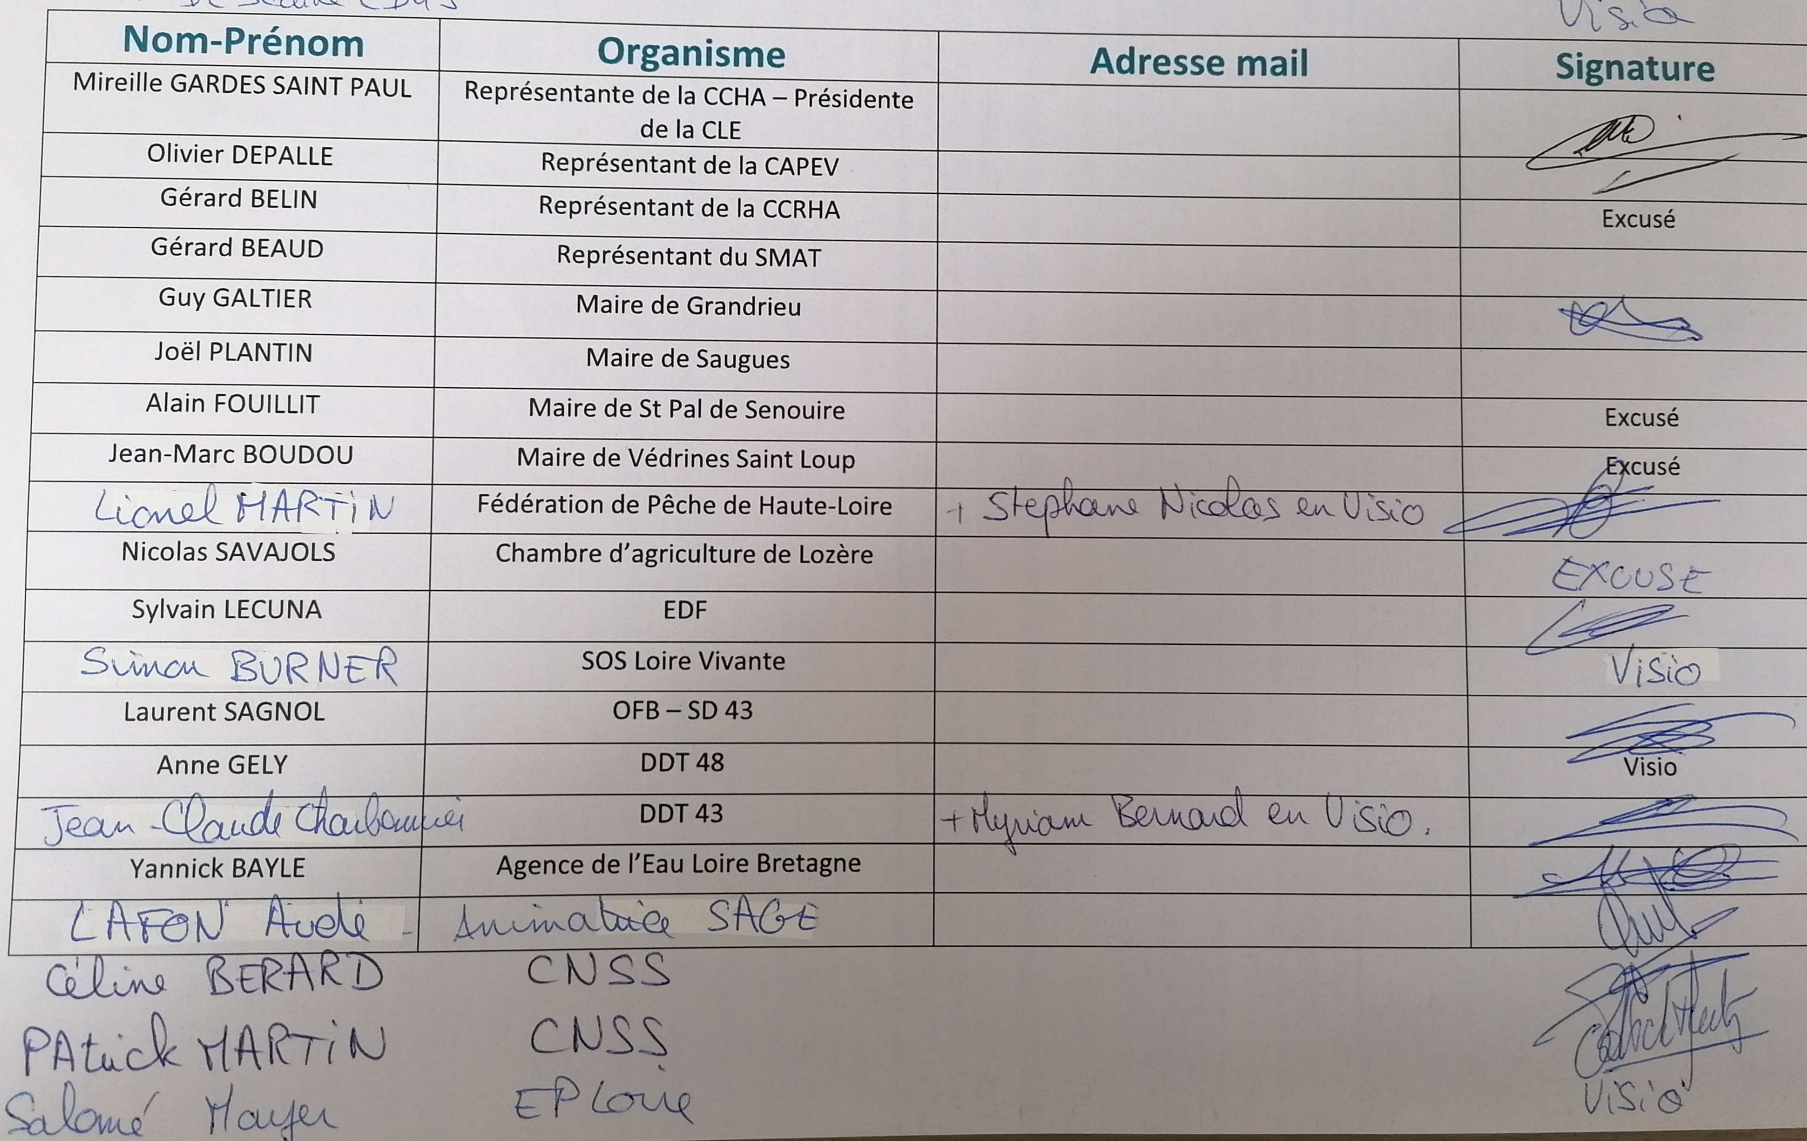 Visio
Nom-Prénom Organisme Adresse mail Signature
Mireille GARDES SAINT PAUL Représentante de la CCHA – Présidente
de la CLE
Olivier DEPALLE Représentant de la CAPEV
Gérard BELIN Représentant de la CCRHA Excusé
Gérard BEAUD Représentant du SMAT
Guy GALTIER Maire de Grandrieu
Joël PLANTIN Maire de Saugues
Alain FOUILLIT Maire de St Pal de Senouire Excusé
Jean-Marc BOUDOU Maire de Védrines Saint Loup Excusé
Lionel MARTIN Fédération de Pêche de Haute-Loire + Stephane Nicolas en Visio
Nicolas SAVAJOLS Chambre d'agriculture de Lozère EXCUSE
Sylvain LECUNA EDF
Simon BURNER SOS Loire Vivante Visio
Laurent SAGNOL OFB – SD 43
Anne GELY DDT 48 Visio
Jean-Claude Charbonnier DDT 43 + Myriam Bernard en Visio.
Yannick BAYLE Agence de l'Eau Loire Bretagne
LAFON Aude - Animatrice SAGE
Céline BERARD CNSS
PAtrick MARTIN CNSS
Salomé Mayer EP Loire Visio